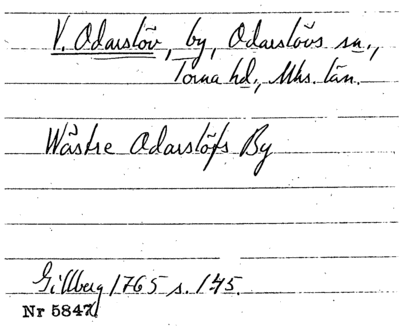 V. Odarslöv, by, Odarslövs sn.,
Torna hd., Mhs. län.
Wästre Odarslöfs By
Gillberg 1765 s. 145.
Nr 5847